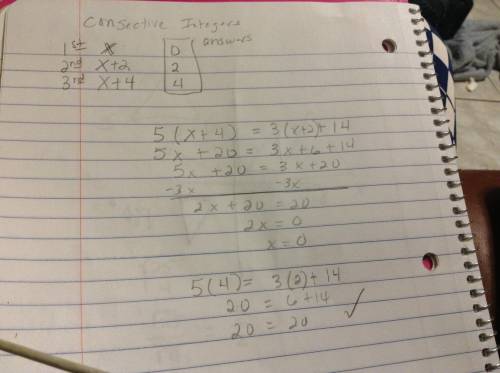 Consective Integers
answers
1st x 0
2nd x+2 2
3rd x+4 4
5(x+4) = 3(x+2)+14
5x +20 = 3x+6+14
5x +20 = 3x+20
-3x -3x
2x+20 = 20
2x = 0
x = 0
5(4) = 3(2)+14
20 = 6+14
20 = 20 ✓